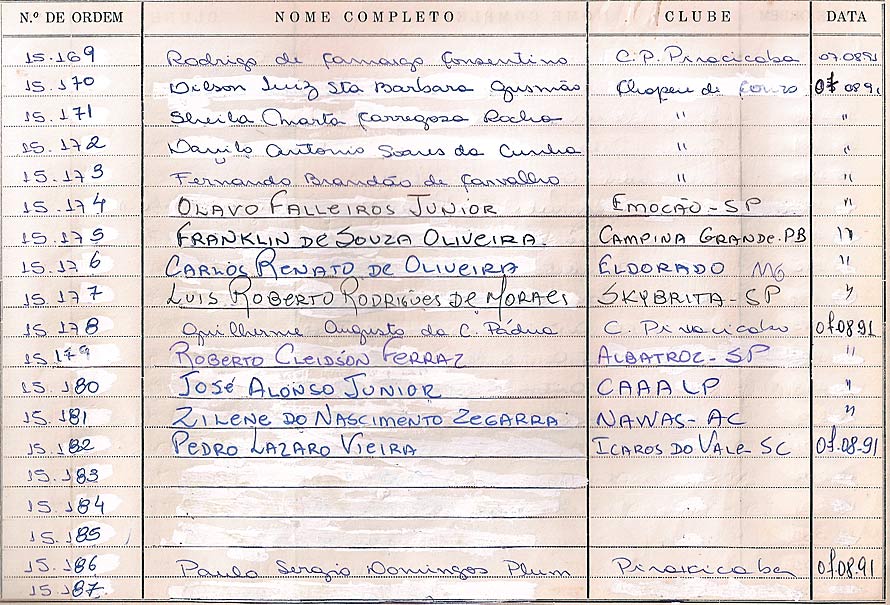 N.º DE ORDEM NOME COMPLETO CLUBE DATA
15.169 Rodrigo de Camargo Consentino C.P. Piracicaba 07.0891
15.170 Dilson Luiz Sta Barbara Gusmão Chapeu de Couro 07 0891
15.171 Sheila Marta Carregosa Rocha " "
15.172 Danilo Antonio Soares da Cunha " "
15.173 Fernando Brandão de Carvalho " "
15.174 OLAVO FALLEIROS JUNIOR EMOCÃO - SP "
15.175 FRANKLIN DE SOUZA OLIVEIRA. CAMPINA GRANDE.PB "
15.176 CARLOS RENATO DE OLIVEIRA ELDORADO MG "
15.177 LUIS ROBERTO RODRIGUES DE MORAES SKYBRITA - SP "
15.178 Guilherme Augusto da C. Pádua C. Piracicaba 07.08.91
15.179 ROBERTO CLEIDSON FERRAZ ALBATROZ - SP "
15.180 JOSÉ ALONSO JUNIOR CAAALP "
15.181 ZILENE DO NASCIMENTO ZEGARRA NAWAS - AC "
15.182 PEDRO LAZARO VIEIRA ICAROS DO VALE - SC 07.08.91
15.183
15.184
15.185
15.186 Paulo Sergio Domingos Plum Piracicaba 07.08.91
15.187.